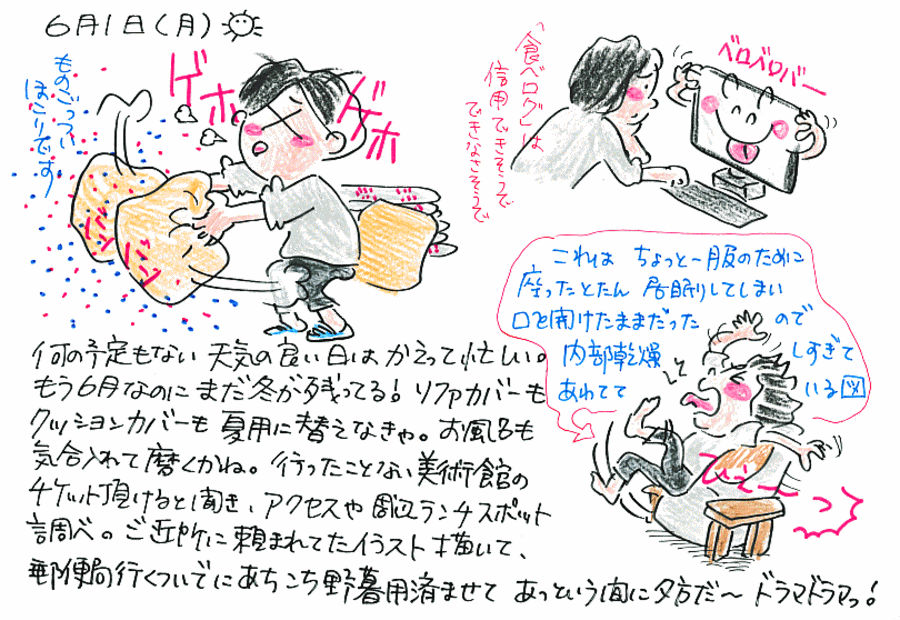 6月1日(月)
ものごっつい
ほこりです!
ゲホ
ゲホ
バンバン
「食べログ」は
信用できそうで
できなさそうで
ベロベロバー
これは ちょっと一服のために
座ったとたん 居眠りしてしまい
口を開けたままだった ので
内部乾燥 しすぎて
あわてて いる図
ひぇーっ
何の予定もない 天気の良い日は かえって忙しい。
もう6月なのに まだ冬が残ってる! ソファカバーも
クッションカバーも 夏用に替えなきゃ。お風呂も
気合入れて磨くかね。行ったことない美術館の
チケット頂けると聞き、アクセスや周辺ランチスポット
調べの ご近所に頼まれてたイラスト描いて、
郵便局行くついでにあちこち野暮用済ませて あっという間に夕方だ〜 ドラマドラマっ!